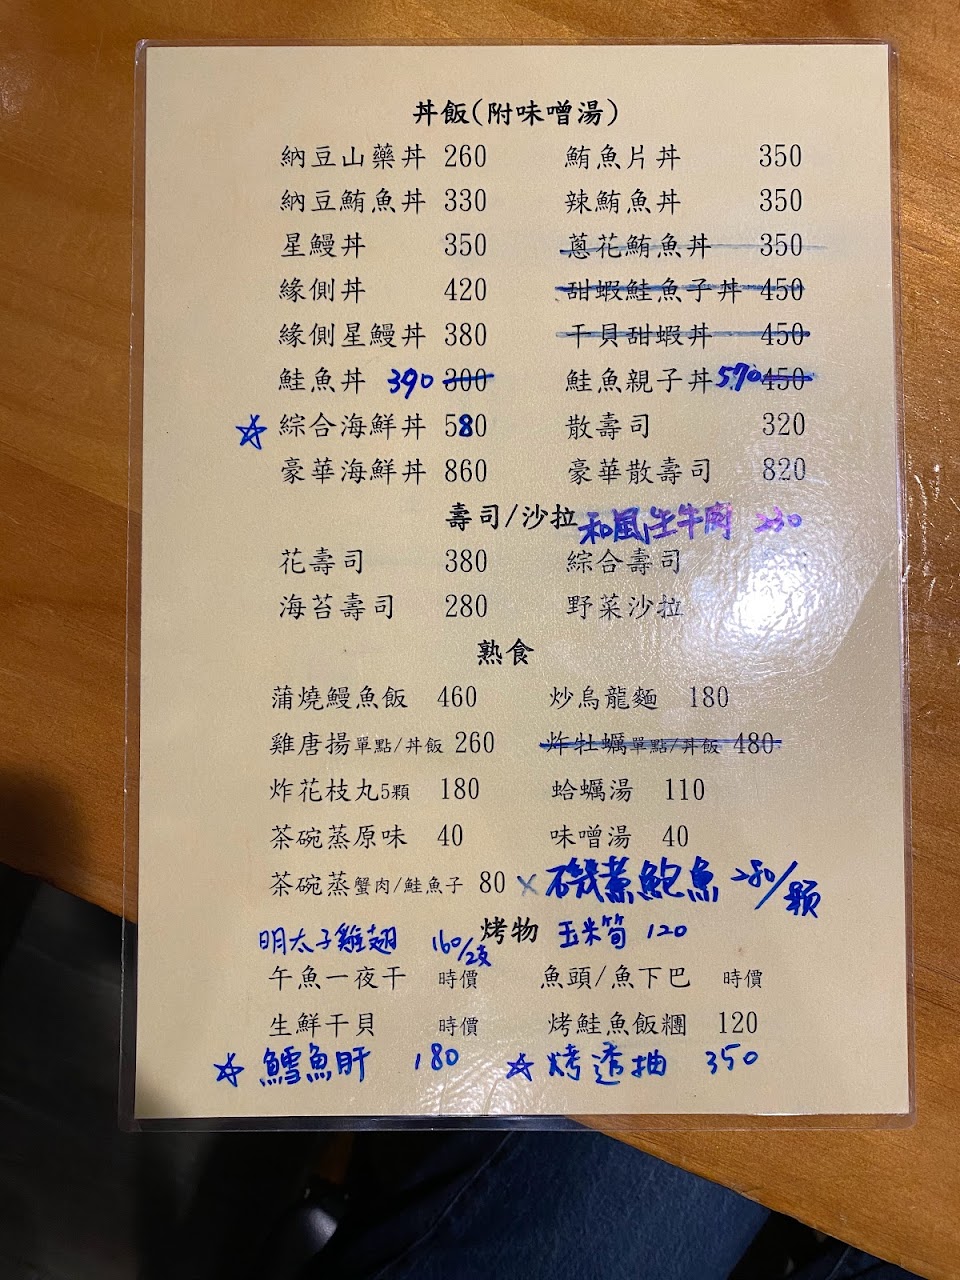 丼飯(附味噌湯)
納豆山藥丼 260 鮪魚片丼 350
納豆鮪魚丼 330 辣鮪魚丼 350
星鰻丼 350 蔥花鮪魚丼 350
緣側丼 420 甜蝦鮭魚子丼 450
緣側星鰻丼 380 干貝甜蝦丼 450
鮭魚丼 390 300 鮭魚親子丼 570 450
☆ 綜合海鮮丼 580 散壽司 320
豪華海鮮丼 860 豪華散壽司 820
壽司/沙拉 和風生牛肉 230
花壽司 380 綜合壽司
海苔壽司 280 野菜沙拉
熟食
蒲燒鰻魚飯 460 炒烏龍麵 180
雞唐揚單點/丼飯 260 炸牡蠣單點/丼飯 480
炸花枝丸5顆 180 蛤蠣湯 110
茶碗蒸原味 40 味噌湯 40
茶碗蒸蟹肉/鮭魚子 80 x 磯煮鮑魚 280/顆
明太子雞翅 160/2支 烤物 玉米筍 120
午魚一夜干 時價 魚頭/魚下巴 時價
生鮮干貝 時價 烤鮭魚飯糰 120
☆ 鱈魚肝 180 ☆ 烤透抽 350